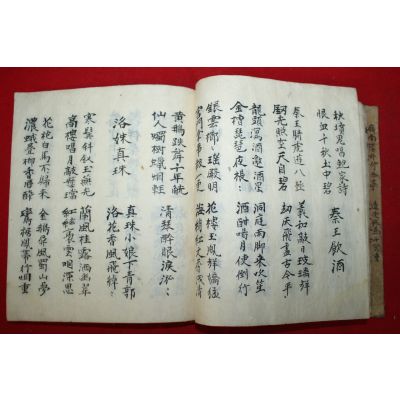 秋墳鬼唱鮑家詩
恨血千秋土中碧
秦王飲酒
秦王騎虎遊八極
劍光照空天自碧
義和敲日玻璃聲
劫灰飛盡古今平
龍頭瀉酒邀酒星
金槽琵琶夜棖〻
洞庭雨脚來吹笙
酒酣喝月使倒行
銀雲櫛〻瑤殿明
宮門掌事報一更
花樓玉鳳聲嬌獰
海綃紅文香淺清
黃鵝跌舞千年觥
仙人燭樹蠟烟輕
清琴醉眼淚泓〻
洛姝真珠
真珠小娘下青郭
洛花香風飛綽〻
寒鬢斜釵玉燕光
高樓唱月敲懸璫
蘭風桂露洒幽翠
紅絃裊雲咽深思
花袍白馬不歸來
濃蛾疊柳香唇醉
金鵝屏風蜀山夢
鸞裾鳳帶行烟重